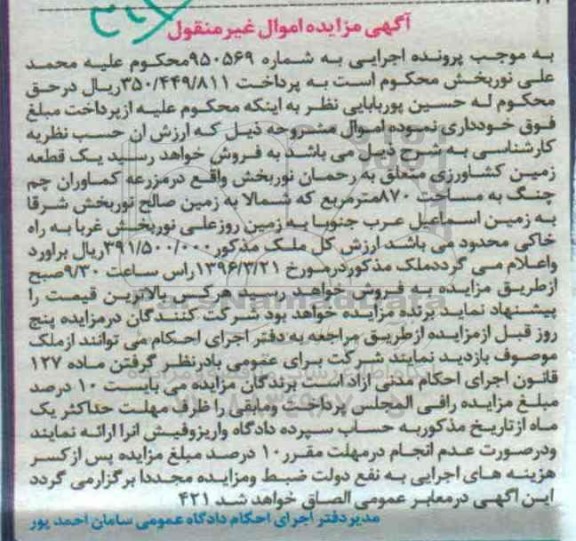 آگهی مزایده اموال غیر منقول
به موجب پرونده اجرایی به شماره ۹۵۰۵۶۹محکوم علیه محمد
علی نوربخش محکوم است به پرداخت ۳۵۰/۴۴۹/۸۱۱ریال درحق
محکوم له حسین پوربابایی نظر به اینکه محکوم علیه ازپرداخت مبلغ
فوق خودداری نموده اموال مشروحه ذیل که ارزش ان حسب نظریه
کارشناسی به شرح ذیل می باشد به فروش خواهد رسید یک قطعه
زمین کشاورزی متعلق به رحمان نوربخش واقع درمزرعه کماوران چم
چنگ به مساحت ۸۷۰مترمربع که شمالا به زمین صالح نوربخش شرقا
به زمین اسماعیل عرب جنوبا به زمین روزعلی نوربخش غربا به راه
خاکی محدود می باشد ارزش کل ملک مذکور ۳۹۱/۵۰۰/۰۰۰ریال براورد
واعلام می گرددملک مذکوردرمورخ ۱۳۹۶/۳/۲۱راس ساعت ۹/۳۰صبح
ازطریق مزایده به فروش خواهد رسید هرکس بالاترین قیمت را
پیشنهاد نماید برنده مزایده خواهد بود شرکت کنندگان درمزایده پنج
روز قبل ازمزایده ازطریق مراجعه به دفتر اجرای احکام می توانند ازملک
موصوف بازدید نمایند شرکت برای عمومی بادرنظر گرفتن ماده ۱۲۷
قانون اجرای احکام مدنی ازاد است برندگان مزایده می بایست ۱۰ درصد
مبلغ مزایده رافی المجلس پرداخت ومابقی را ظرف مهلت حداکثر یک
ماه ازتاریخ مذکوربه حساب سپرده دادگاه واریزوفیش انرا ارائه نمایند
ودرصورت عدم انجام درمهلت مقرر۱۰ درصد مبلغ مزایده پس ازکسر
هزینه های اجرایی به نفع دولت ضبط ومزایده مجددا برگزارمی گردد
این آگهی درمعابر عمومی الصاق خواهد شد ۴۲۱
مدیردفتر اجرای احکام دادگاه عمومی سامان احمد پور